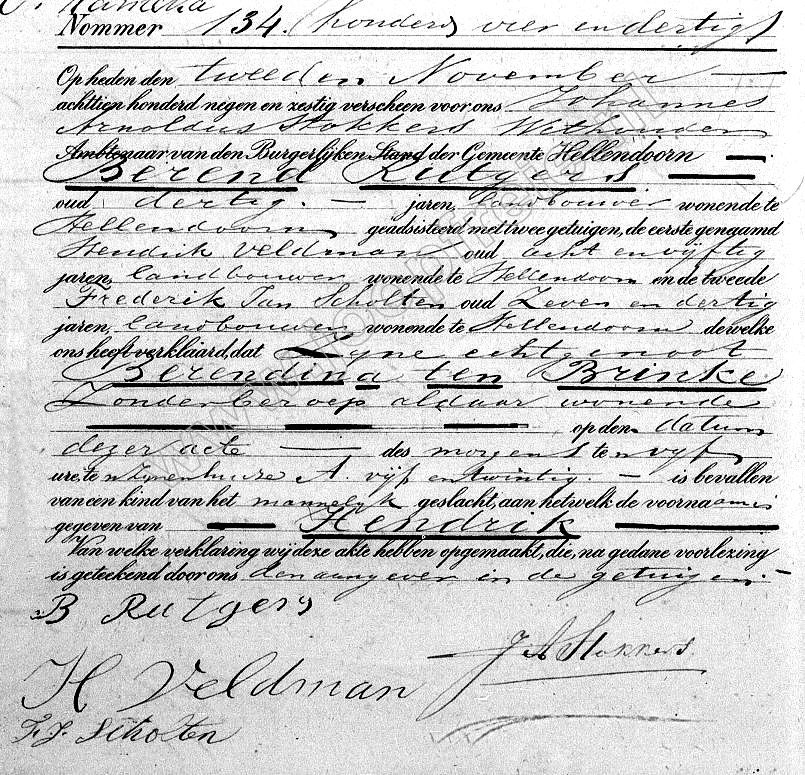 Nommer 134. (honderd vier en dertig)
Op heden den tweeden November
achttien honderd negen en zestig verscheen voor ons Johannes
Arnoldus Stokkers Wethouder
Ambtenaar van den Burgerlijken Stand der Gemeente Hellendoorn
Berend Rutgers
oud dertig. jaren, landbouwer wonende te
Hellendoorn geadsisteerd met twee getuigen, de eerste genaamd
Hendrik Veldman oud acht en vijftig
jaren, landbouwer wonende te Hellendoorn en de tweede
Frederik Jan Scholten oud Zeven en dertig
jaren, landbouwer wonende te Hellendoorn dewelke
ons heeft verklaard, dat Zijne echtgenoot
Berendina ten Brinke
Zonder beroep aldaar wonende
op den datum
dezer acte des morgens ten vijf
ure, ten zijnen huize A. vijf en twintig. is bevallen
van een kind van het mannelijk geslacht, aan hetwelk de voornaam is
gegeven van Hendrik
Van welke verklaring wij deze akte hebben opgemaakt, die, na gedane voorlezing
is geteekend door ons den aangever en de getuigen.
B Rutgers
J A Stokkers
H Veldman
F. J. Scholten